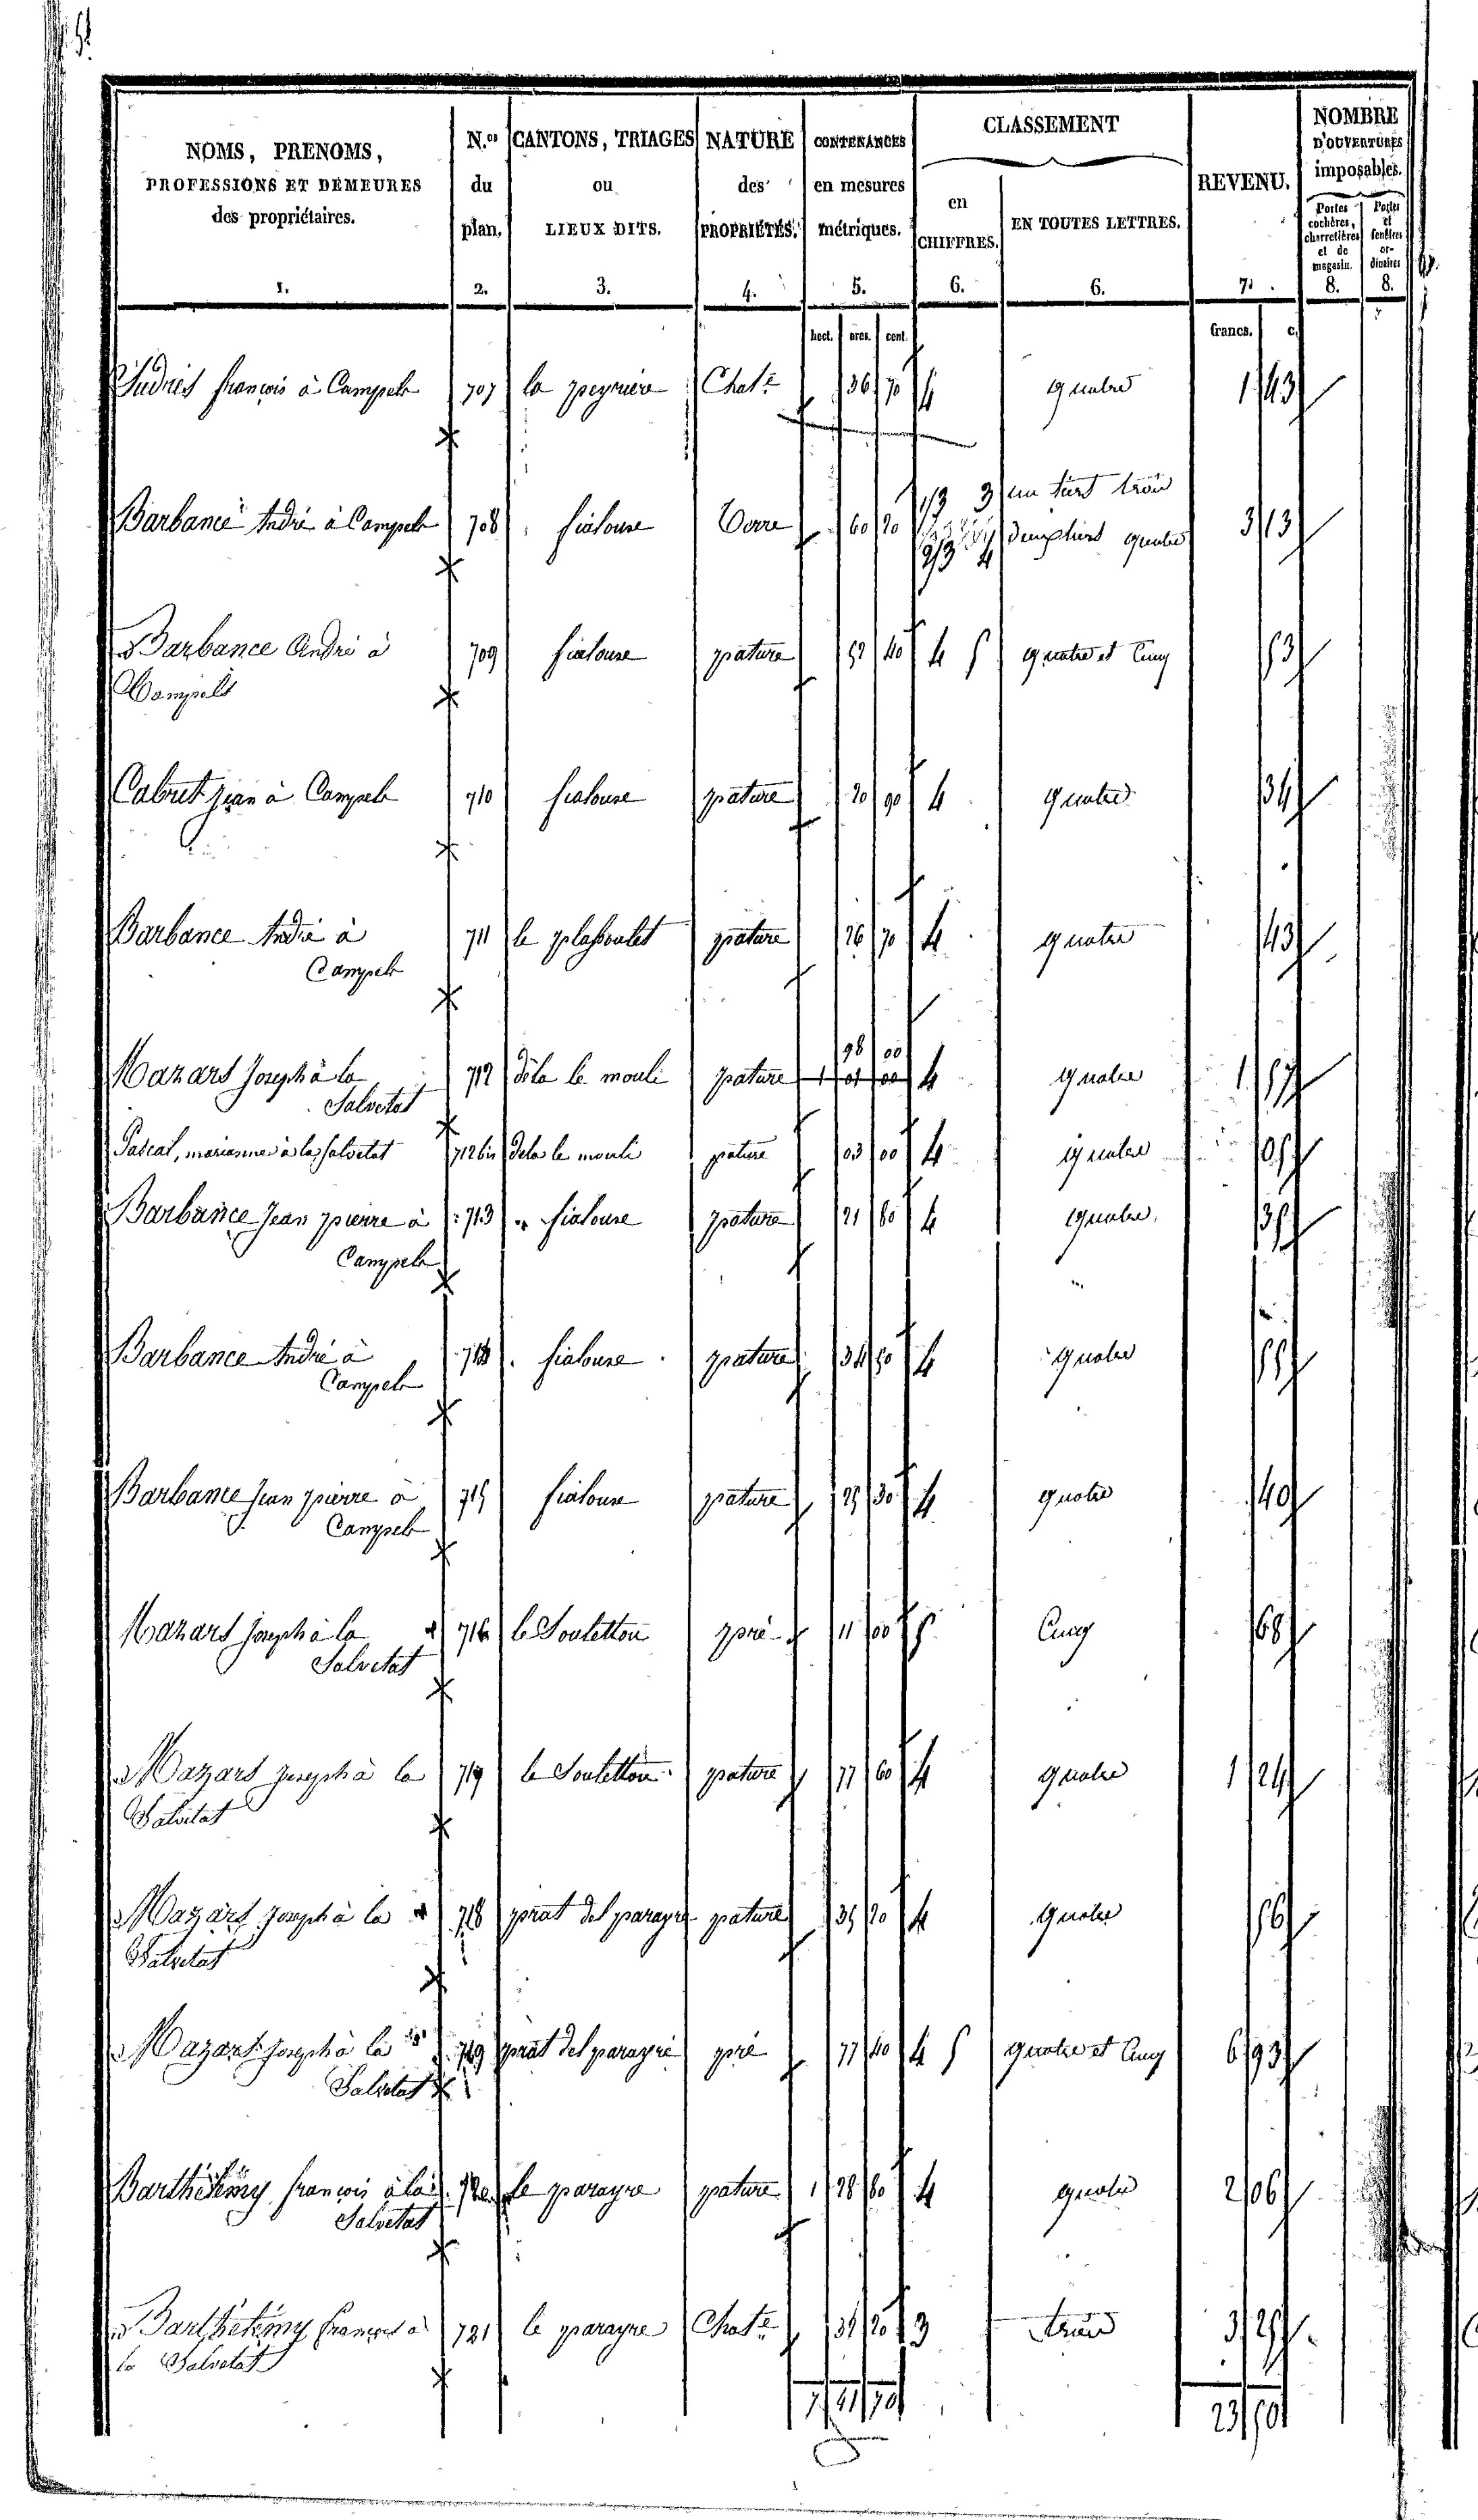 NOMS, PRENOMS, PROFESSIONS ET DEMEURES des propriétaires. 1.
N.os du plan. 2.
CANTONS, TRIAGES ou LIEUX DITS. 3.
NATURE des PROPRIÉTÉS. 4.
CONTENANCES en mesures métriques. 5.
CLASSEMENT
en CHIFFRES. 6.
EN TOUTES LETTRES. 6.
REVENU. 7.
NOMBRE D'OUVERTURES imposables.
Portes cochères, charretières et de magasin. 8.
Portes et fenêtres ordinaires 8.
hect. ares. cent. francs. c.
françois à Campels 707 la peyriere Chat.e 36 70 4 quatre 1 43
Barbance André à Campels 708 fialouse Terre 60 20 1/3 3 un tiers trois 3 13
2/3 4 deux tiers quatre
Barbance André à 709 fialouse pature 52 40 4 5 quatre et Cinq 53
Campels
Cabrit jean à Campels 710 fialouse pature 20 90 4 quatre 34
Barbance André à 711 le plassoulet pature 26 70 4 quatre 43
Campels
98 00
Mazars Joseph à la 712 dela le mouli pature 1 01 00 4 quatre 1 57
Salvetat
Pascal, marianne à la Salvetat 712 bis dela le mouli pature 03 00 4 quatre 05
Barbance Jean pierre à 713 fialouse pature 21 80 4 quatre 35
Campels
Barbance André à 714 fialouse pature 34 50 4 quatre 55
Campels
Barbance Jean pierre à 715 fialouse pature 25 30 4 quatre 40
Campels
Mazars Joseph à la 716 le Souletton pré 11 00 5 Cinq 68
Salvetat
Mazars Joseph à la 717 le Souletton pature 77 60 4 quatre 1 24
Salvetat
Mazars Joseph à la 718 prat del parayre pature 35 20 4 quatre 56
Salvetat
Mazars Joseph à la 719 prat del parayre pré 77 40 4 5 quatre et Cinq 6 93
Salvetat
Barthélémy françois à la 720 le parayre pature 1 28 80 4 quatre 2 06
Salvetat
Barthélémy françois à 721 le parayre Chat.e 31 20 3 trois 3 25
la Salvetat
7 41 70 23 50